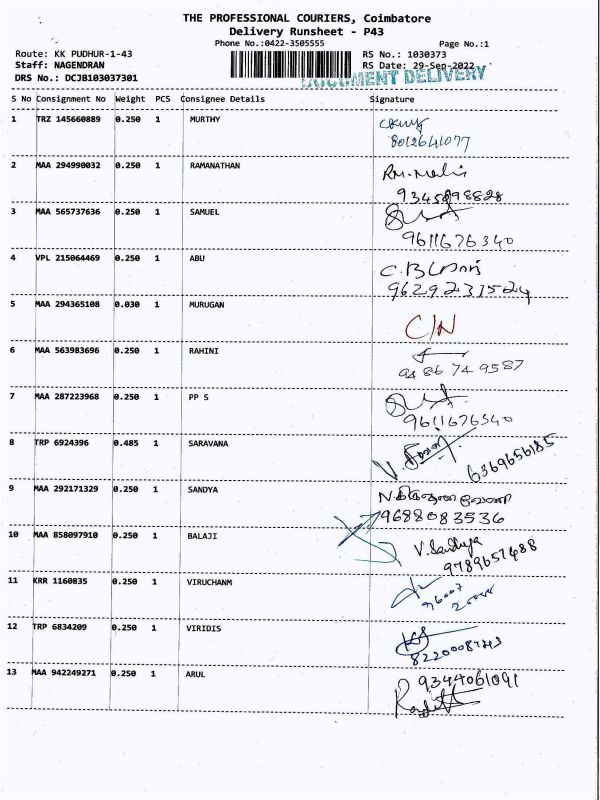 THE PROFESSIONAL COURIERS, Coimbatore
Delivery Runsheet - P43
Phone No.:0422-3505555 Page No.:1
Route: KK PUDHUR-1-43 RS No.: 1030373
Staff: NAGENDRAN RS Date: 29-Sep-2022
DRS No.: DCJB103037301 DOCUMENT DELIVERY
S No Consignment No Weight PCS Consignee Details Signature
1 TRZ 145660889 0.250 1 MURTHY
8012641077
2 MAA 294990032 0.250 1 RAMANATHAN
9345898828
3 MAA 565737636 0.250 1 SAMUEL
9611676340
4 VPL 215064469 0.250 1 ABU
9629231524
5 MAA 294365108 0.030 1 MURUGAN
C/N
6 MAA 563983696 0.250 1 RAHINI
94 86 74 9587
7 MAA 287223968 0.250 1 PP S
9611676340
8 TRP 6924396 0.485 1 SARAVANA
6369656185
9 MAA 292171329 0.250 1 SANDYA
9688083536
10 MAA 858097910 0.250 1 BALAJI
V. Sandhya
9789657488
11 KRR 1160835 0.250 1 VIRUCHANM
12 TRP 6834209 0.250 1 VIRIDIS
13 MAA 942249271 0.250 1 ARUL
9344061091